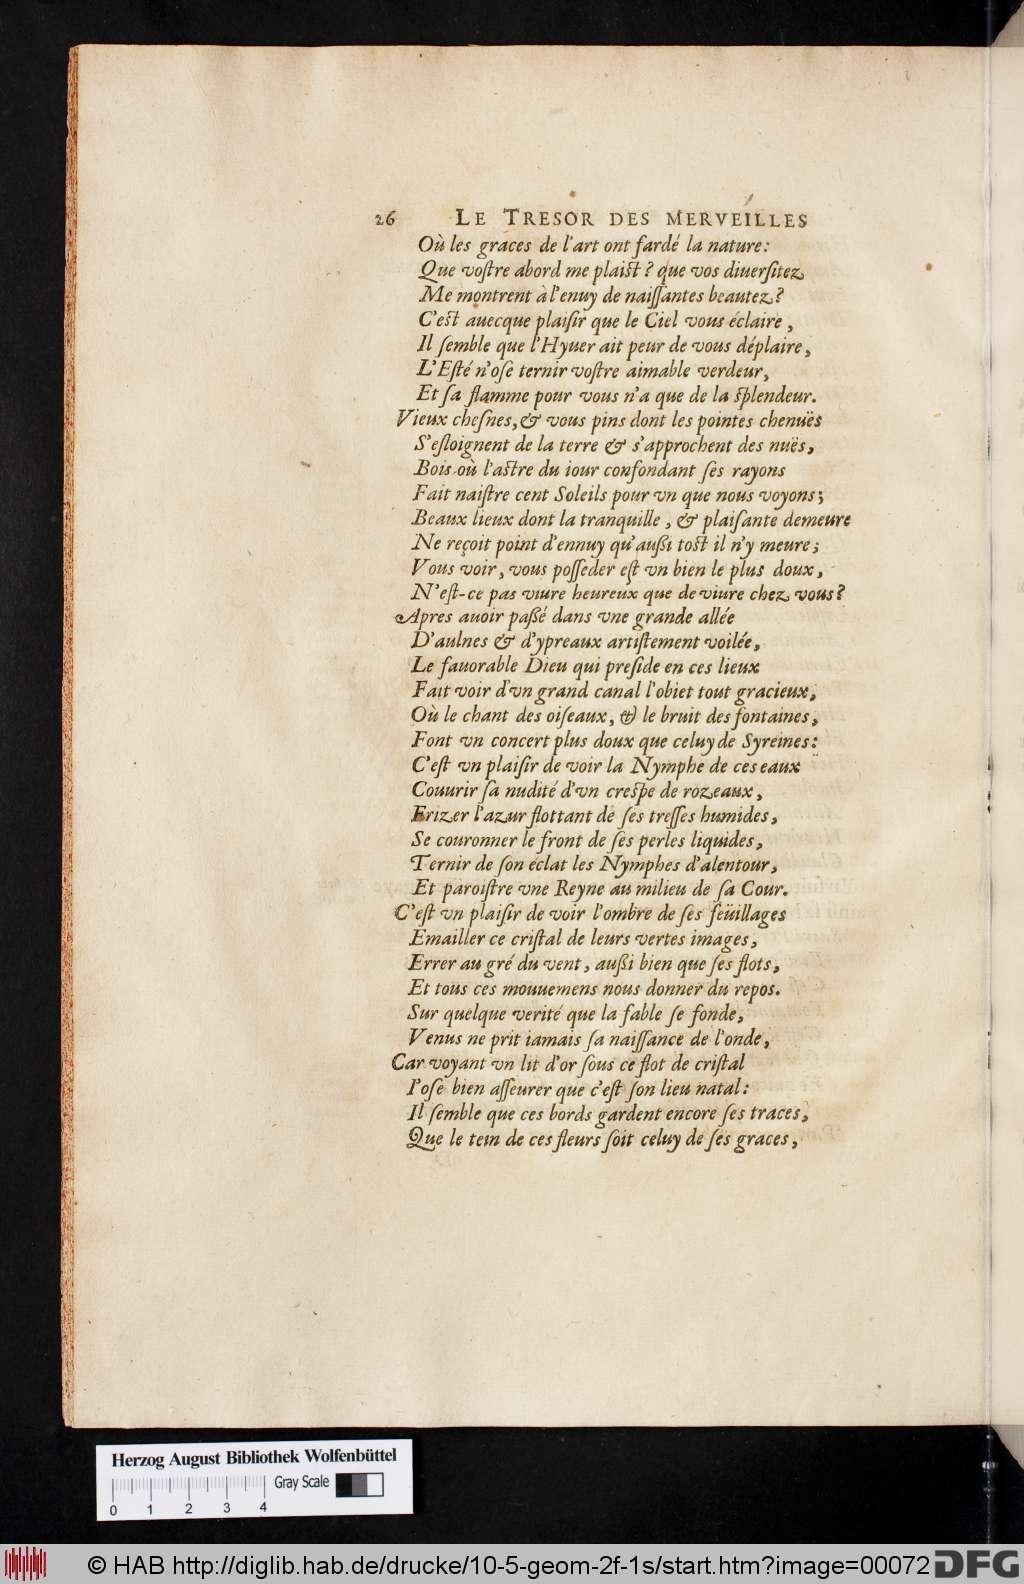 26 LE TRESOR DES MERVEILLES
Où les graces de l'art ont fardé la nature:
Que voſtre abord me plaiſt? que vos diuerſitez
Me montrent à l'enuy de naiſſantes beautez?
C'eſt auecque plaiſir que le Ciel vous éclaire,
Il ſemble que l'Hyuer ait peur de vous déplaire,
L'Eſté n'oſe ternir voſtre aimable verdeur,
Et ſa flamme pour vous n'a que de la ſplendeur.
Vieux cheſnes, & vous pins dont les pointes chenuës
S'eſloignent de la terre & s'approchent des nuës,
Bois où l'aſtre du iour confondant ſes rayons
Fait naiſtre cent Soleils pour vn que nous voyons;
Beaux lieux dont la tranquille, & plaiſante demeure
Ne reçoit point d'ennuy qu'außi toſt il n'y meure;
Vous voir, vous poſſeder eſt vn bien le plus doux,
N'eſt-ce pas viure heureux que de viure chez vous?
Apres auoir paßé dans vne grande allée
D'aulnes & d'ypreaux artiſtement voilée,
Le fauorable Dieu qui preſide en ces lieux
Fait voir d'vn grand canal l'obiet tout gracieux,
Où le chant des oiſeaux, & le bruit des fontaines,
Font vn concert plus doux que celuy de Syreines:
C'eſt vn plaiſir de voir la Nymphe de ces eaux
Couurir ſa nudité d'vn creſpe de rozeaux,
Frizer l'azur flottant de ſes treſſes humides,
Se couronner le front de ſes perles liquides,
Ternir de ſon éclat les Nymphes d'alentour,
Et paroiſtre vne Reyne au milieu de ſa Cour.
C'eſt vn plaiſir de voir l'ombre de ſes feüillages
Emailler ce criſtal de leurs vertes images,
Errer au gré du vent, außi bien que ſes flots,
Et tous ces mouuemens nous donner du repos.
Sur quelque verité que la fable ſe fonde,
Venus ne prit iamais ſa naiſſance de l'onde,
Car voyant vn lit d'or ſous ce flot de criſtal
I'oſe bien aſſeurer que c'eſt ſon lieu natal:
Il ſemble que ces bords gardent encore ſes traces,
Que le tein de ces fleurs ſoit celuy de ſes graces,
Herzog August Bibliothek Wolfenbüttel
Gray Scale
0 1 2 3 4
© HAB http://diglib.hab.de/drucke/10-5-geom-2f-1s/start.htm?image=00072 DFG